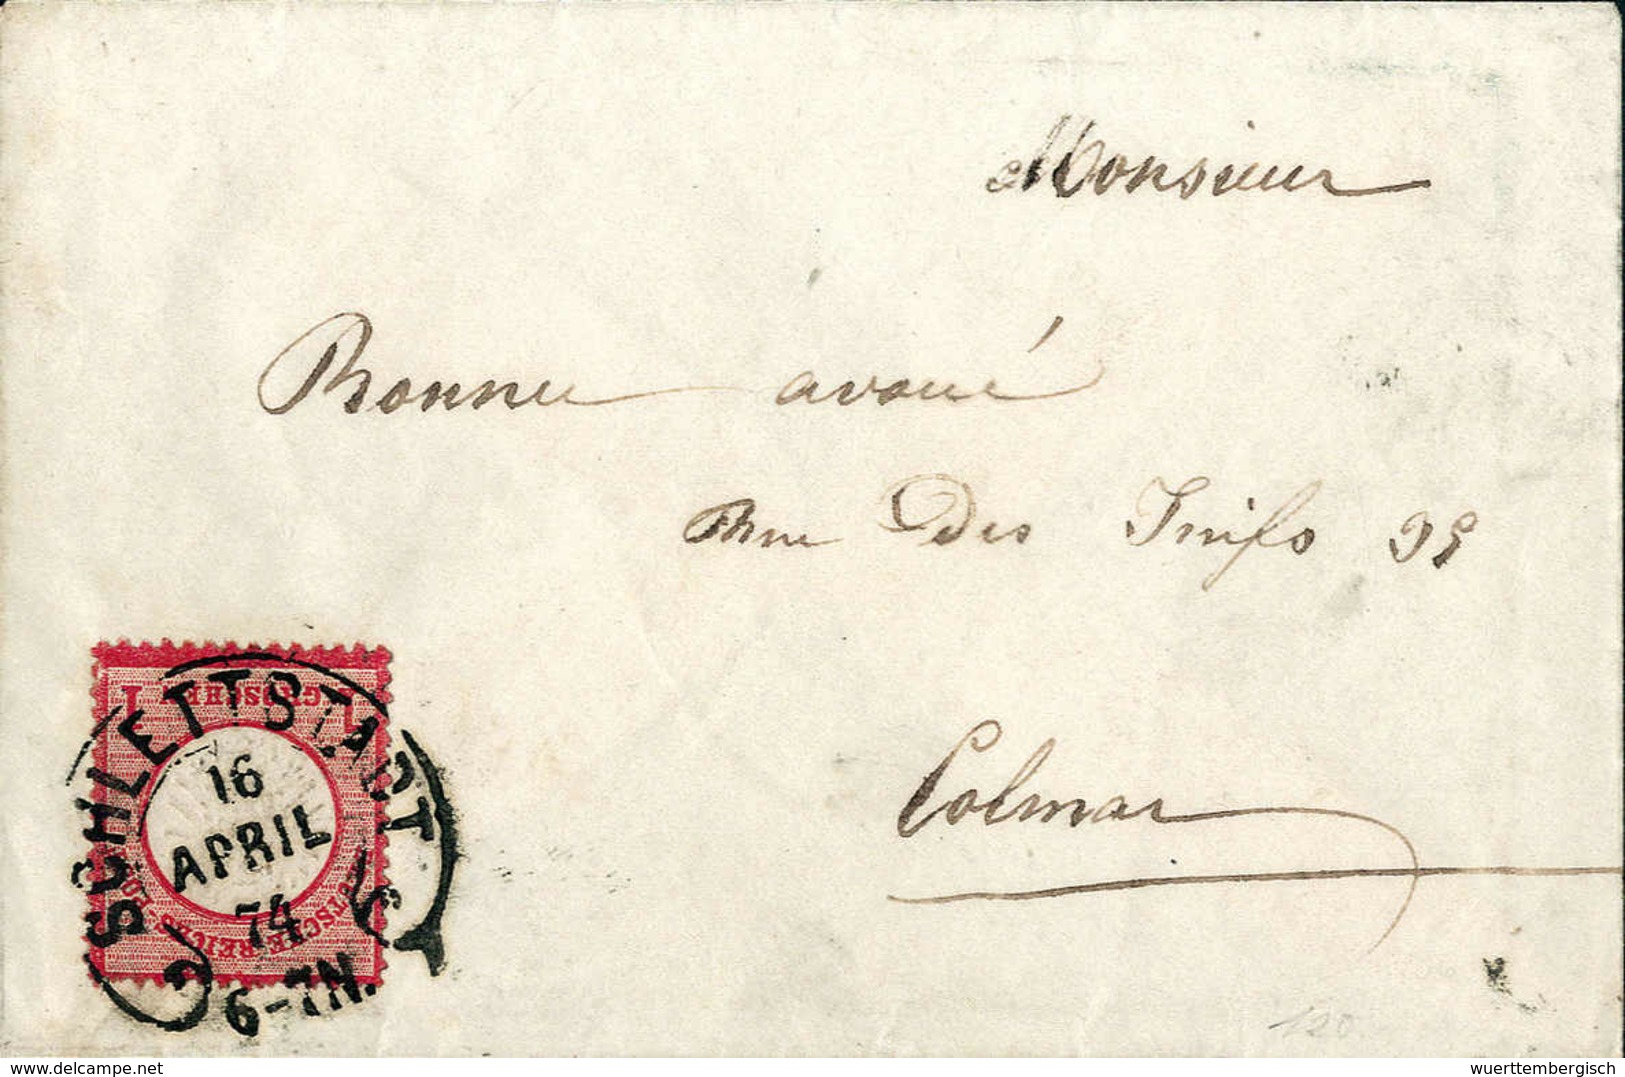 Monsieur
Bonnu avoué
Rue Des Juifs 95
Colmar
1 GROSCHEN 1
DEUTSCHE REICHS-POST
SCHLETTSTADT
16
APRIL
74
6-7N.
120
www.delcampe.net
wuerttembergisch